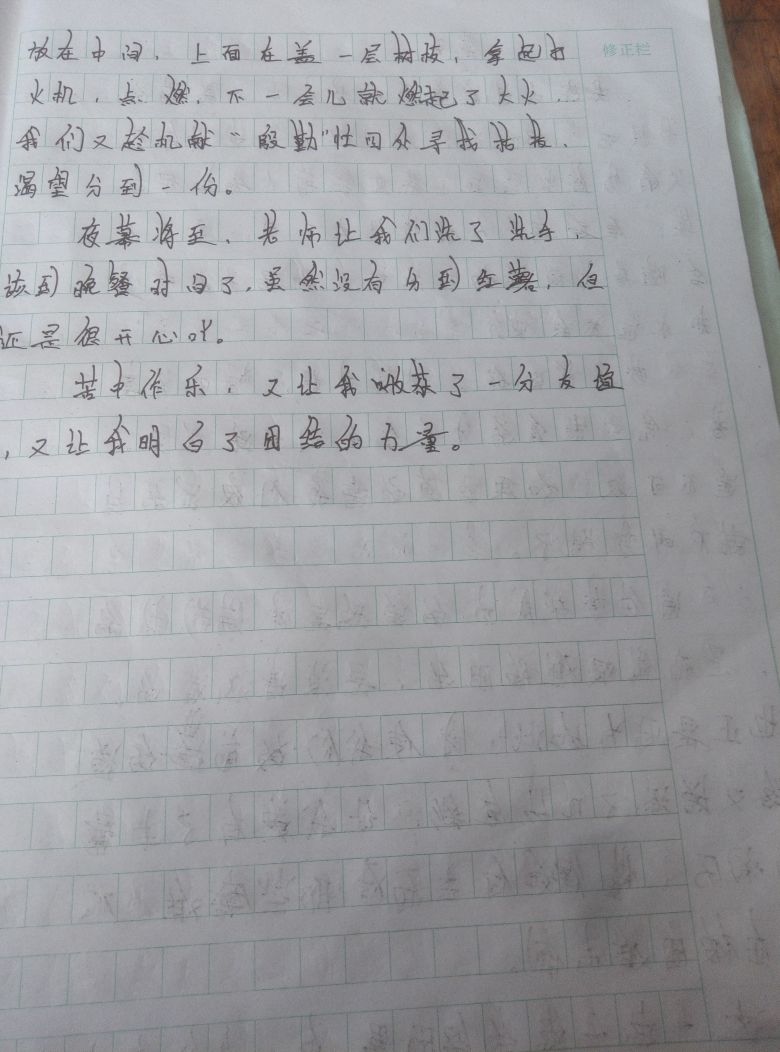 放在中间，上面在盖一层树枝，拿起打
修正栏
火机，点燃，不一会儿就燃起了大火，
我们又趁机献“殷勤”往四处寻找枯枝，
渴望分到一份。
夜幕将至，老师让我们洗了洗手，
该到晚餐时间了，虽然没有分到红薯，但
还是很开心吖。
苦中作乐，又让我收获了一分友谊
，又让我明白了团结的力量。